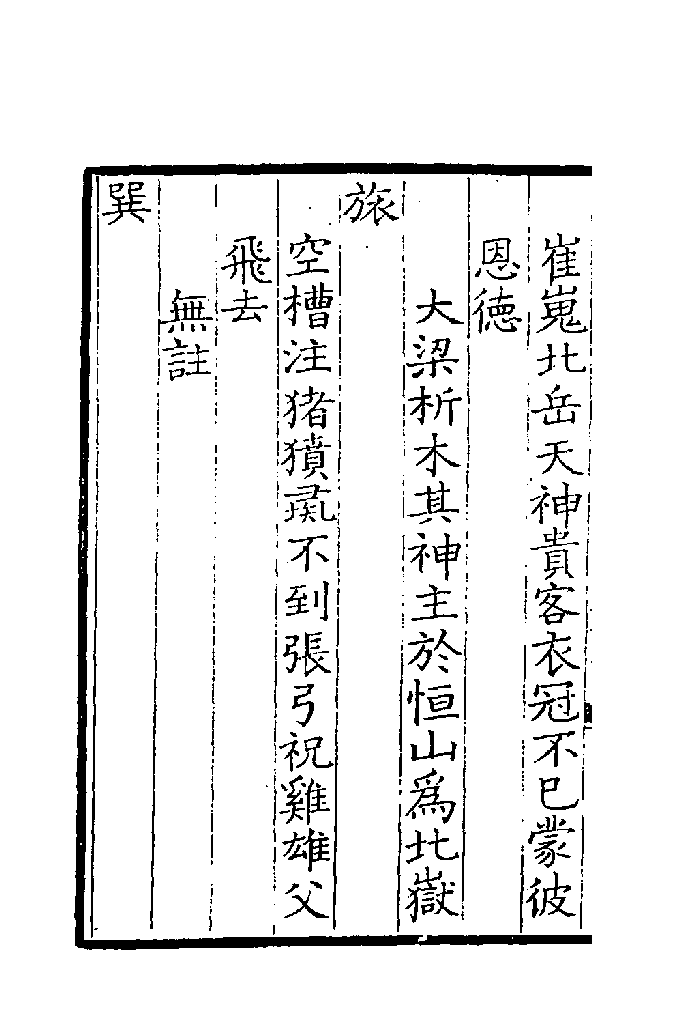 崔嵬北岳天神貴客衣冠不已蒙彼
恩徳
大梁析木其神主於恒山爲北嶽
旅
空槽注猪獖彘不到張弓祝雞雄父
飛去
無註
巽